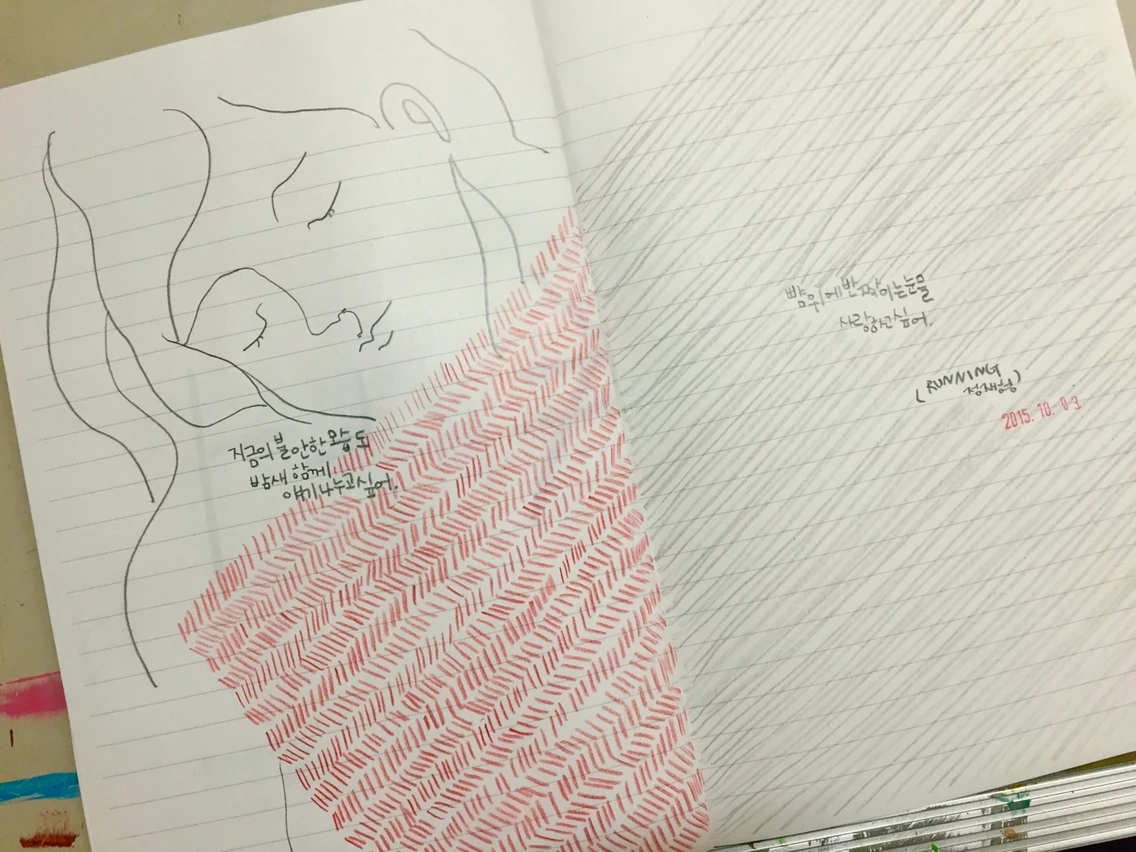 지금의 불안한 모습도
밤새 함께
얘기 나누고 싶어.
뺨 위에 반짝이는 눈물
사랑하고 싶어.
(RUNNING
정재형)
2015. 10. 03